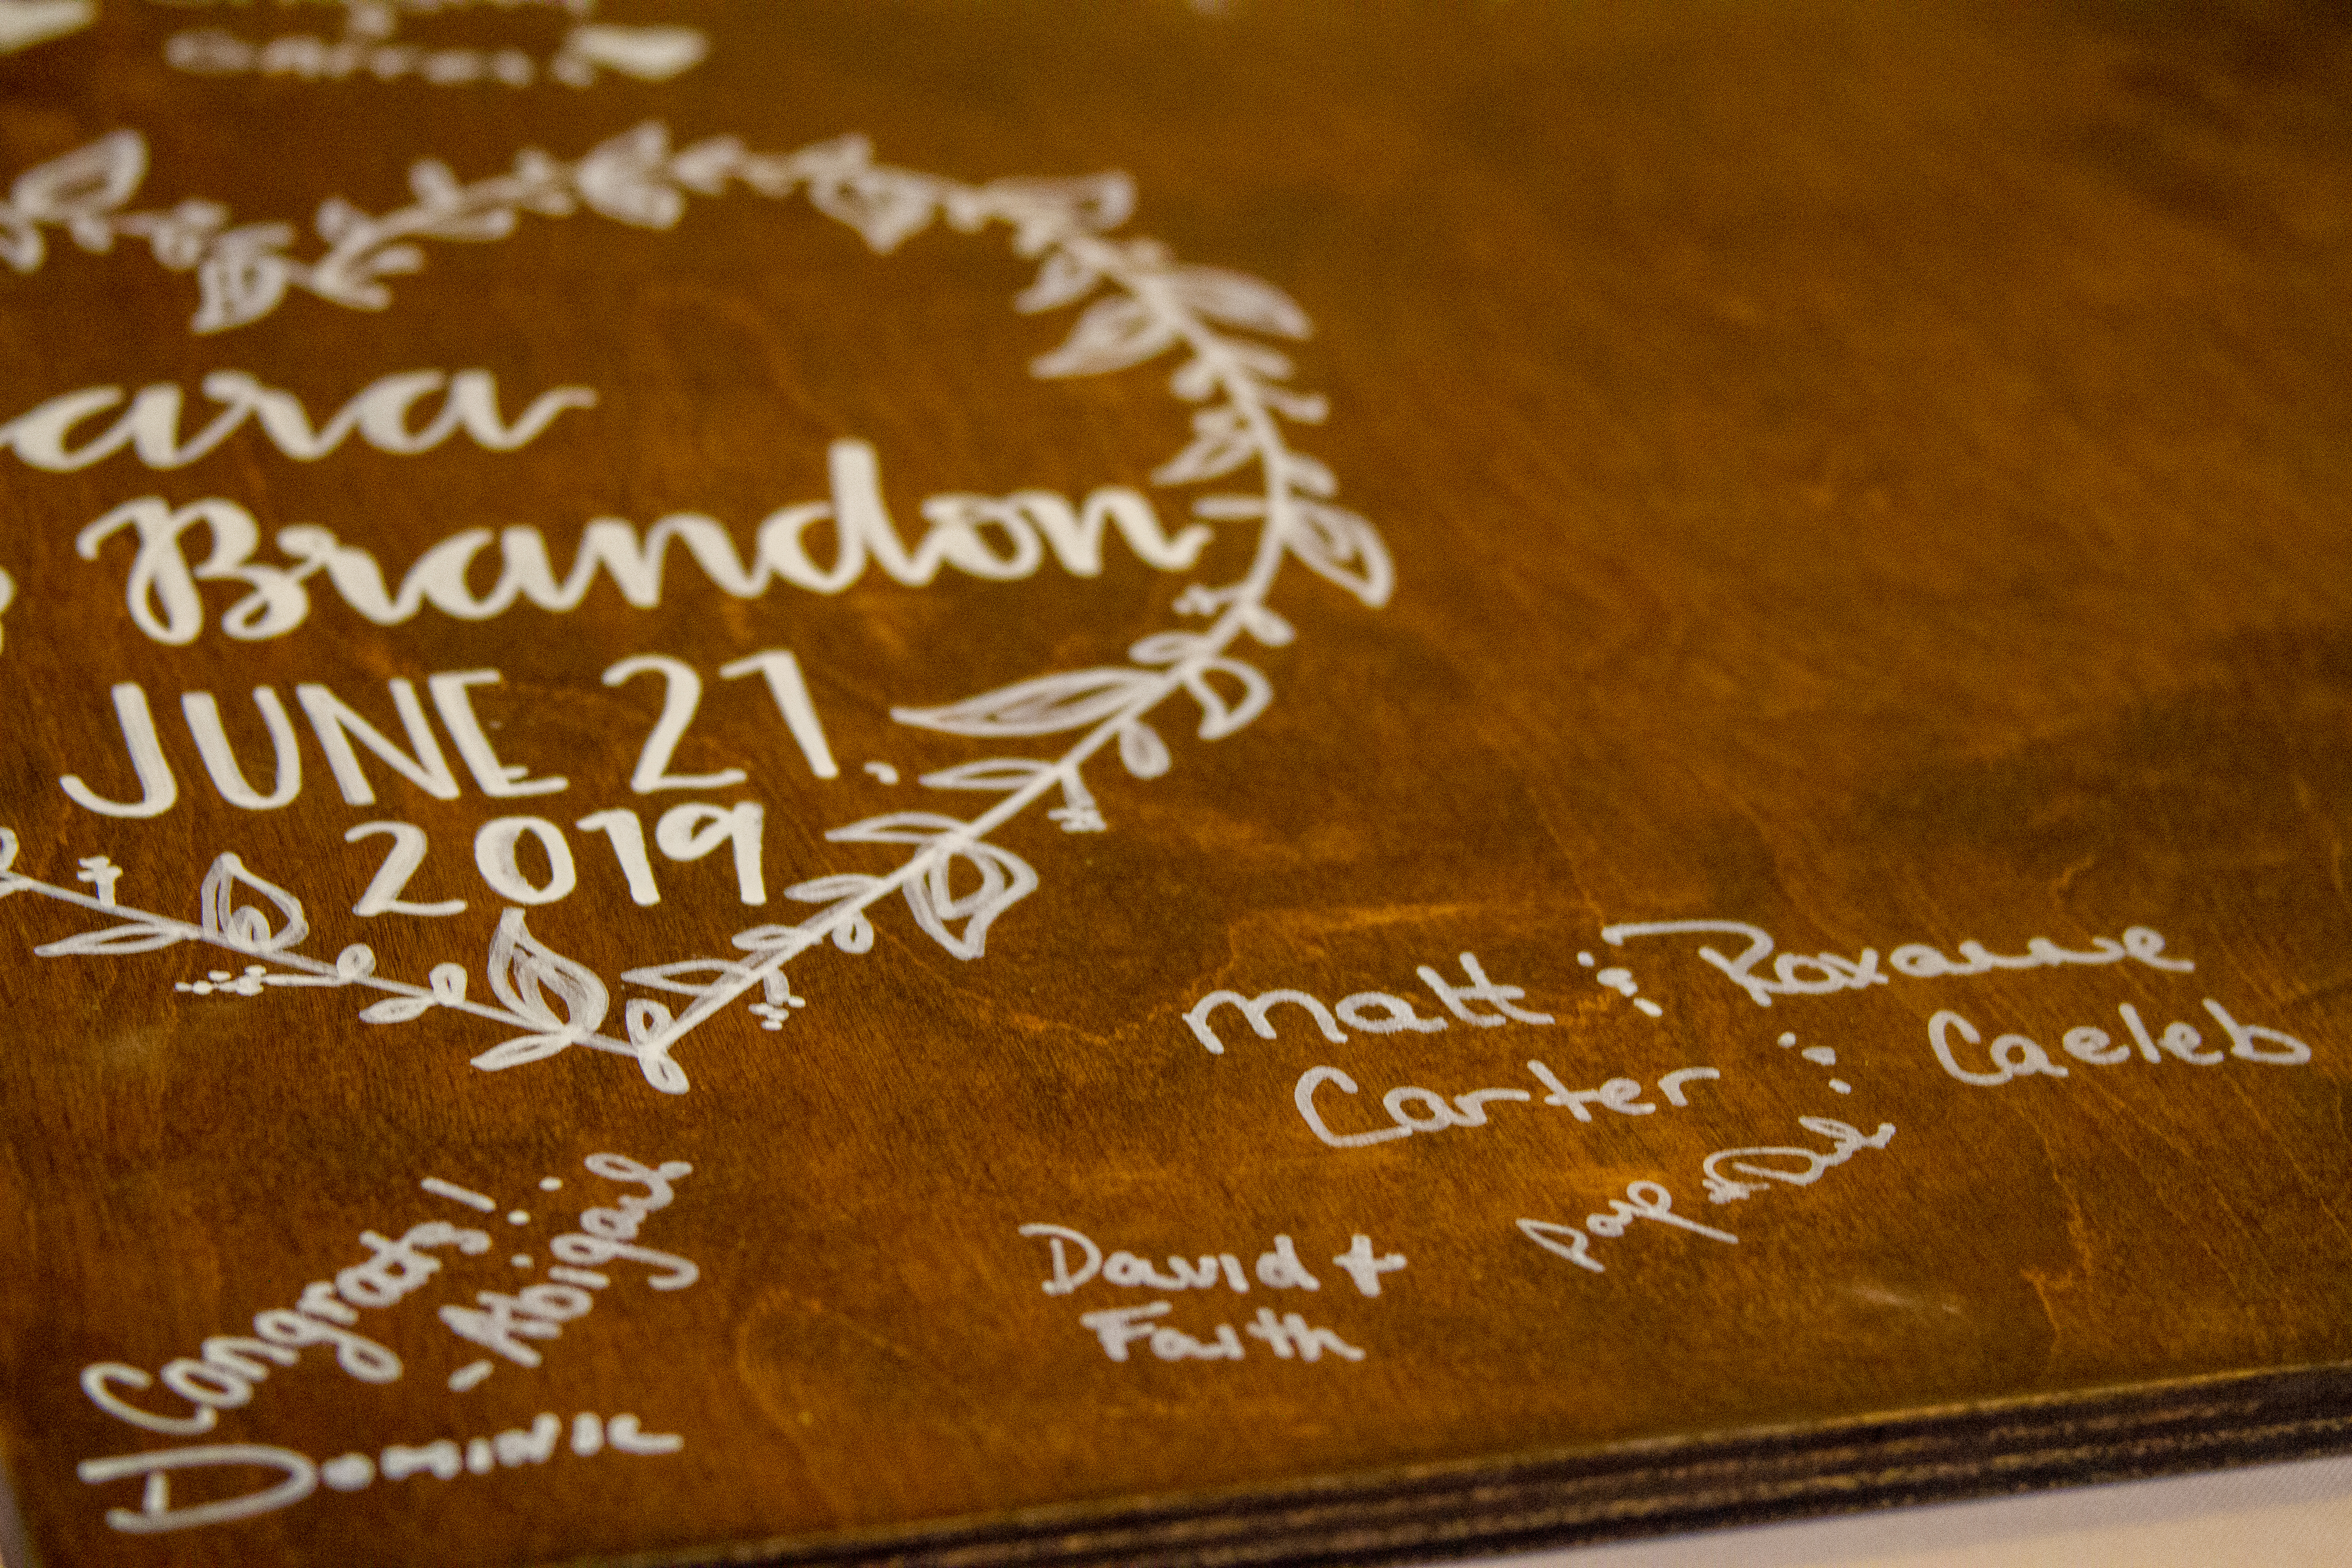 ara
& Brandon
JUNE 21,
2019
Matt & Roxanne
Carter & Caeleb
David +
Faith
Congrats!
- Abigail
Dominic